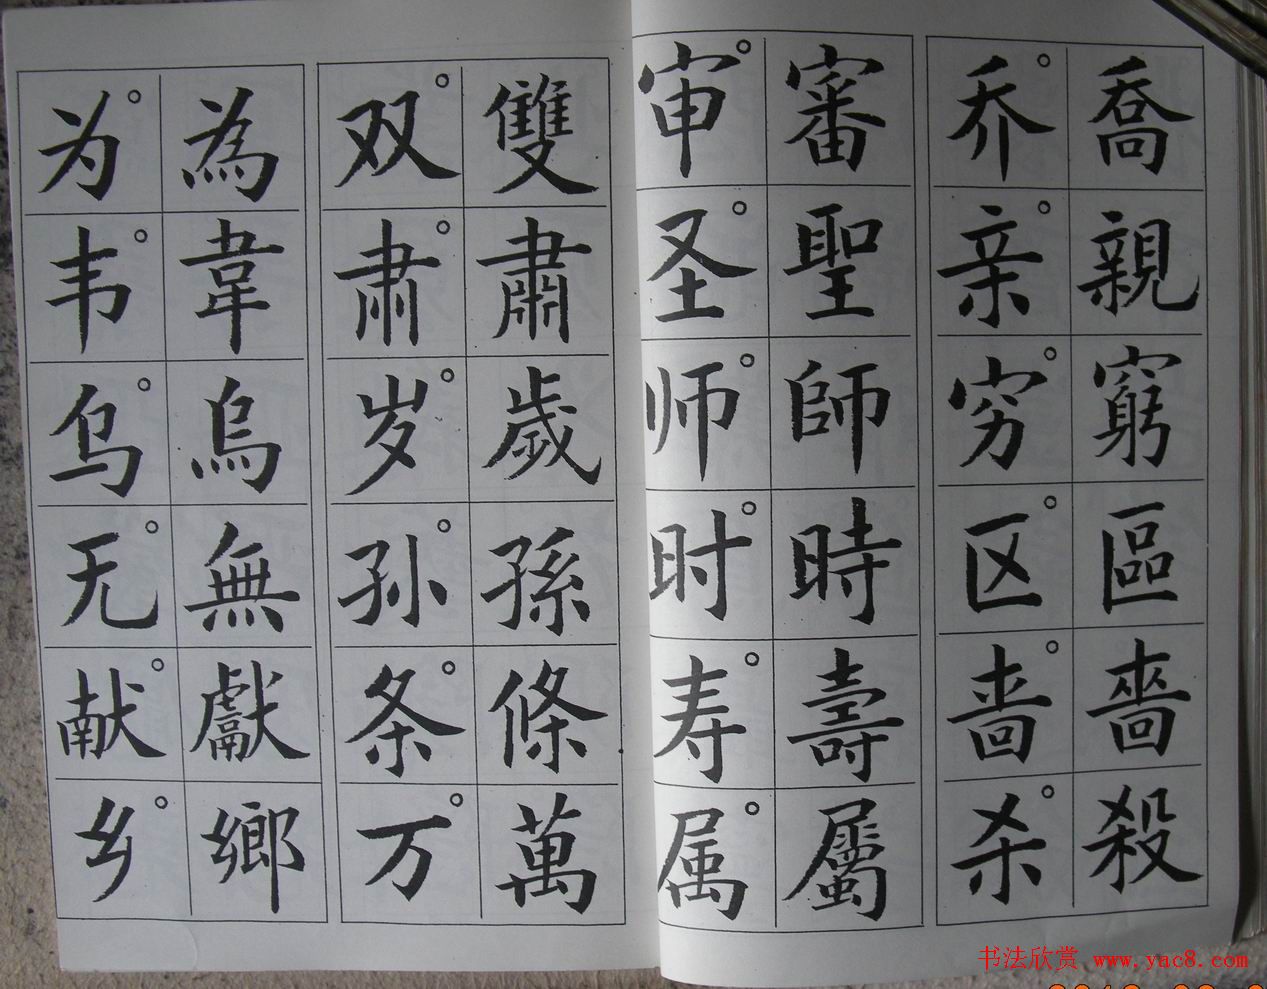 喬親窮區嗇殺
乔亲穷区啬杀
審聖師時壽屬
审圣师时寿属
雙肅歲孫條萬
双肃岁孙条万
為韋烏無獻鄉
为韦乌无献乡
书法欣赏 www.yac8.com